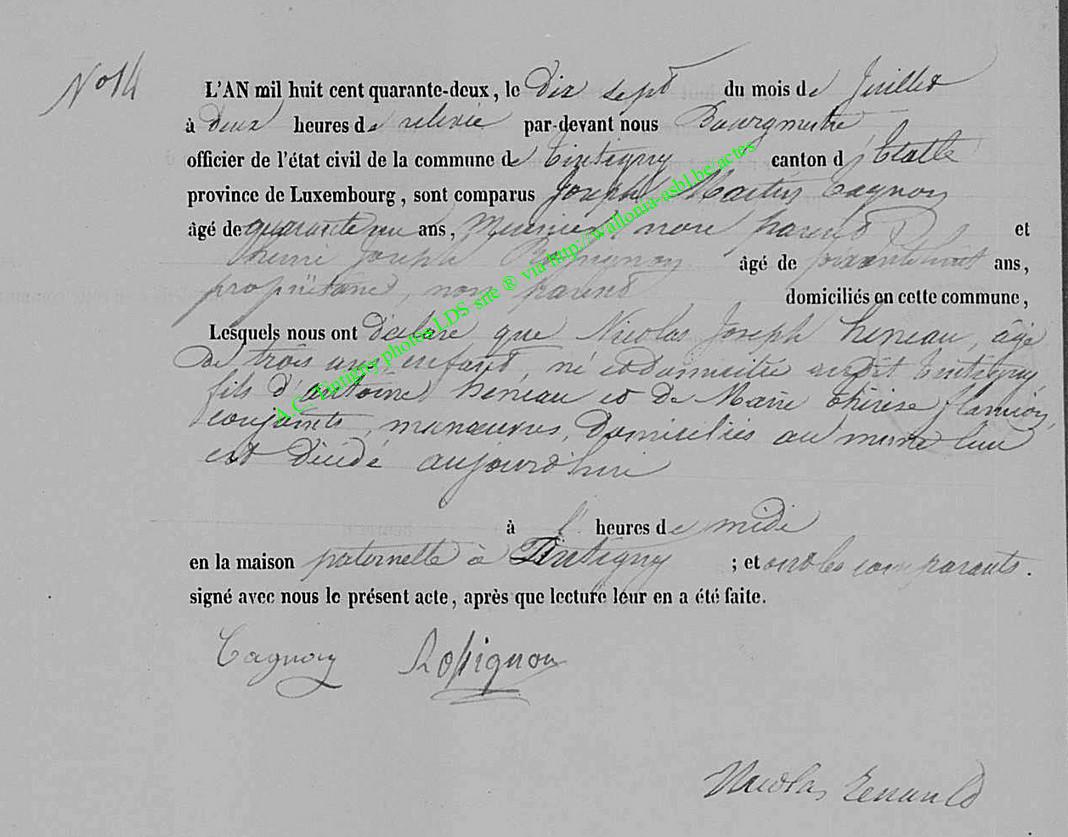 N° 14
L'AN mil huit cent quarante-deux, le dix sept du mois de Juillet
à deux heures de relevée par-devant nous Bourgmestre
officier de l'état civil de la commune de Tintigny canton d'Etalle
province de Luxembourg, sont comparus Joseph Martin Cagnon
âgé de quarante un ans, Meunier, non parent et
Pierre Joseph Ropignon âgé de ans,
propriétaire, non parent domiciliés en cette commune,
Lesquels nous ont déclaré que Nicolas Joseph héneau, âgé
de trois ans, enfant, né et domicilié audit Tintigny
fils d'antoine héneau et de Marie thérèse flamion,
conjoints, manoeuvres, domiciliés au même lieu
est décédé aujourd'hui
à l' heures de midi
en la maison paternelle à Tintigny ; et ont les comparants.
signé avec nous le présent acte, après que lecture leur en a été faite.
Cagnon Ropignon
Nicolas
A.C. Tintigny photos LDS site ® via http://wallonia-asbl.be/actes